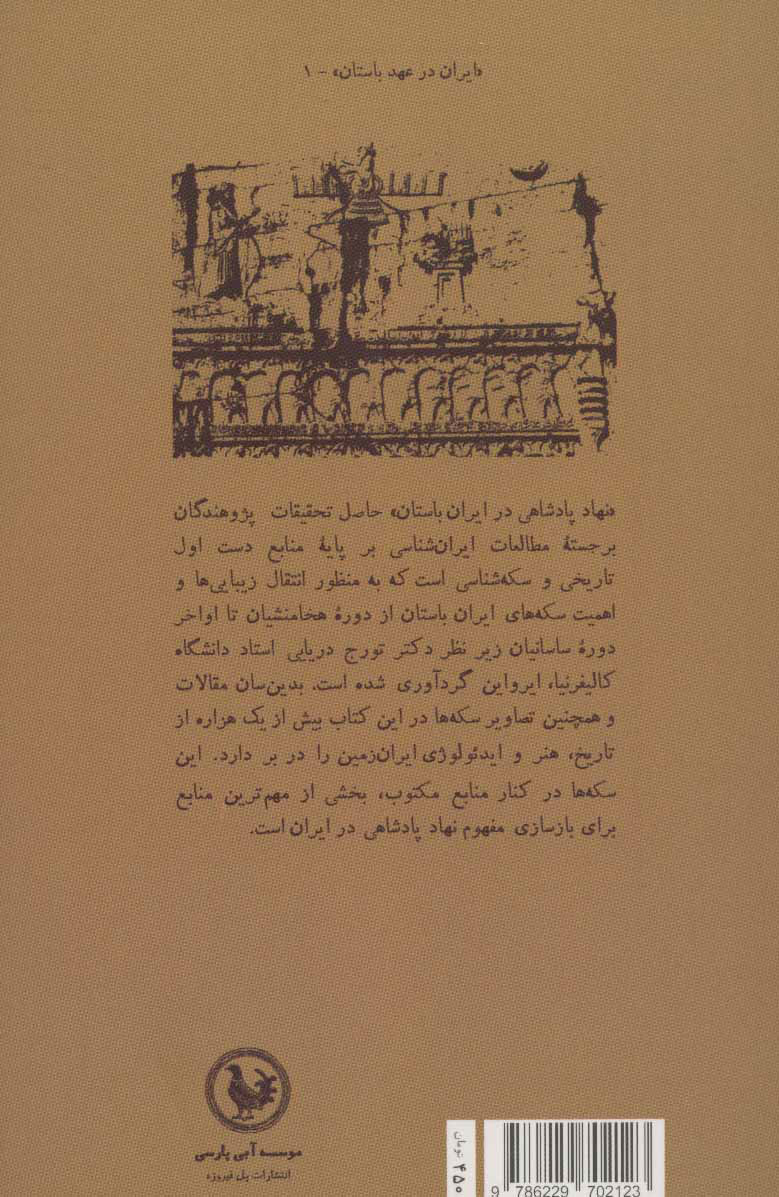 «ایران در عهد باستان» - ۱
«نهاد پادشاهی در ایران باستان» حاصل تحقیقات پژوهندگان
برجستهٔ مطالعات ایران‌شناسی بر پایهٔ منابع دست اول
تاریخی و سکه‌شناسی است که به منظور انتقال زیبایی‌ها و
اهمیت سکه‌های ایران باستان از دورهٔ هخامنشیان تا اواخر
دورهٔ ساسانیان زیر نظر دکتر تورج دریایی استاد دانشگاه
کالیفرنیا، ایرواین گردآوری شده است. بدین‌سان مقالات
و همچنین تصاویر سکه‌ها در این کتاب بیش از یک هزاره از
تاریخ، هنر و ایدئولوژی ایران‌زمین را در بر دارد. این
سکه‌ها در کنار منابع مکتوب، بخشی از مهم‌ترین منابع
برای بازسازی مفهوم نهاد پادشاهی در ایران است.
موسسه آبی پارسی
انتشارات پل فیروزه
تومان
9 786229 702123